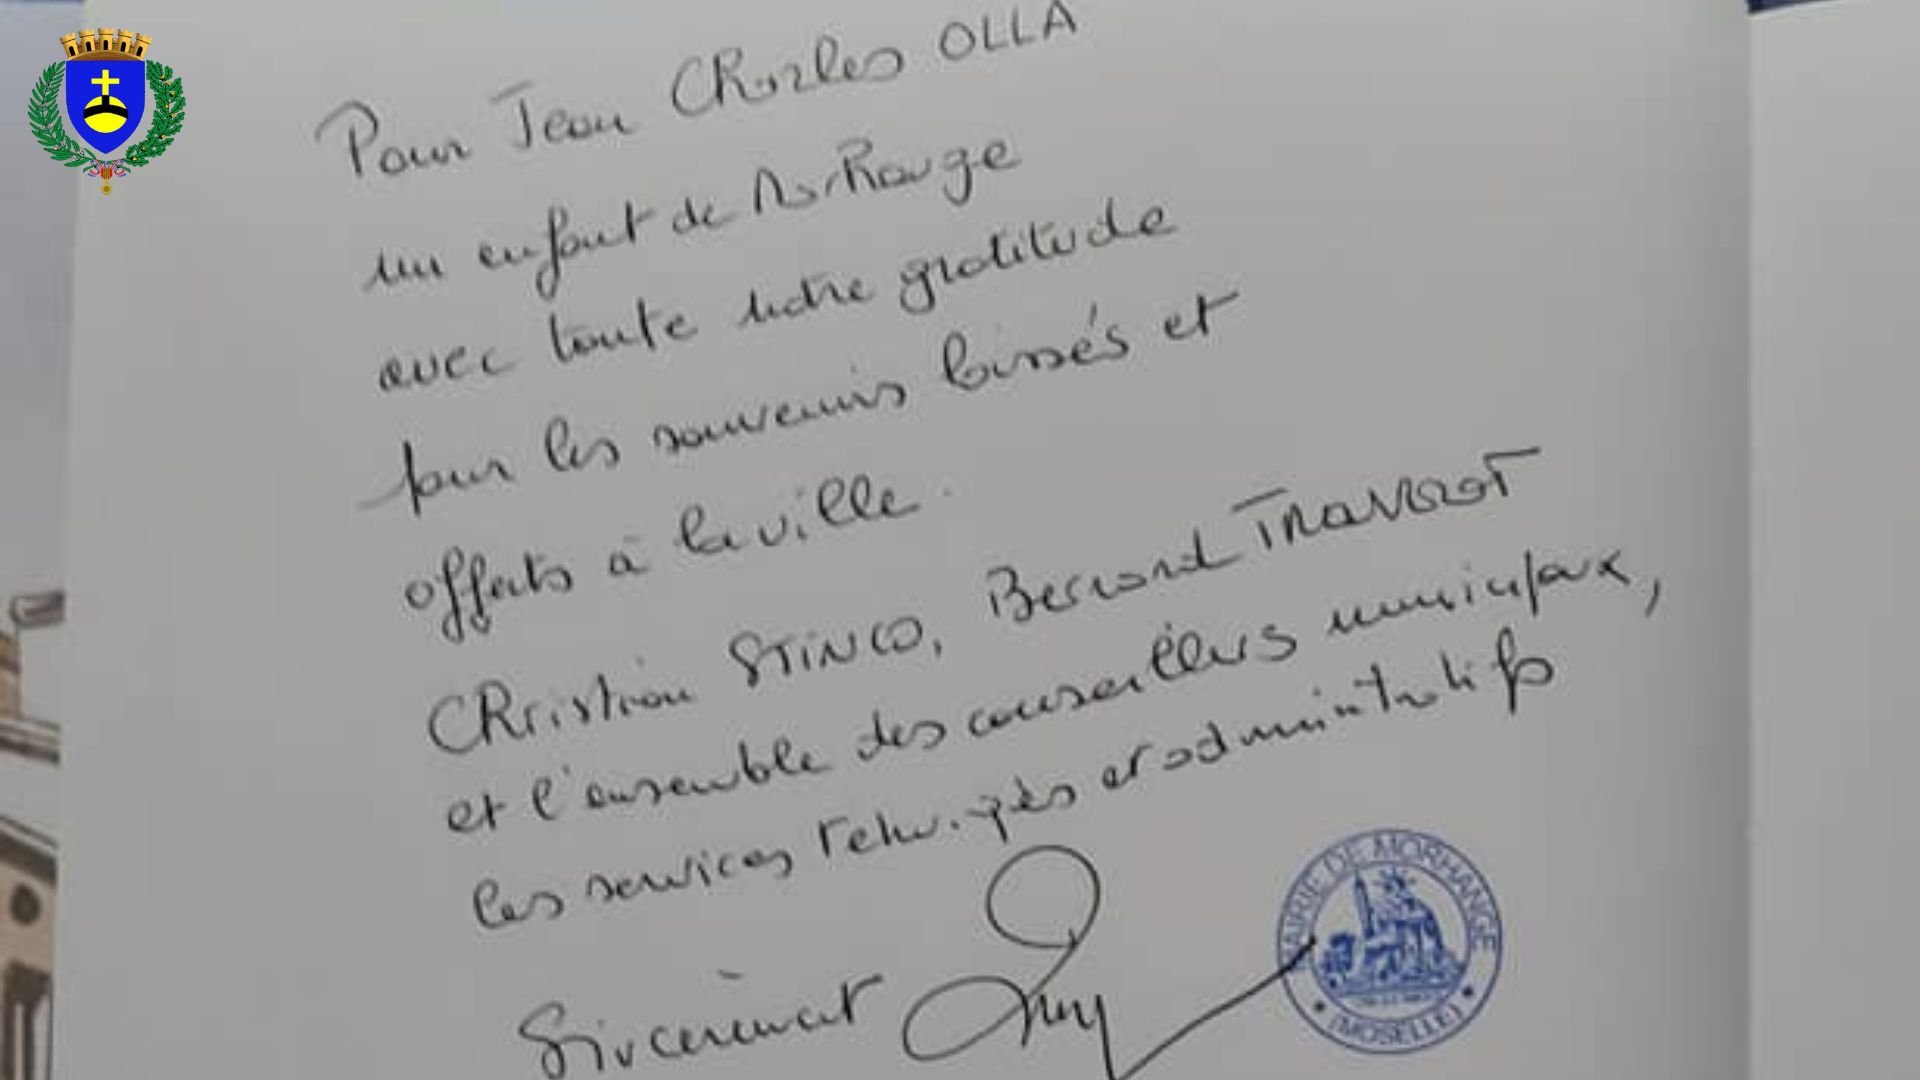 Pour Jean Charles OLLA
un enfant de Morhange
avec toute notre gratitude
pour les souvenirs laissés et
offerts à la ville.
Christian STINCO, Bernard
et l'ensemble des conseillers municipaux,
les services techniques et administratifs
Sincèrement
MAIRIE DE MORHANGE
(MOSELLE)